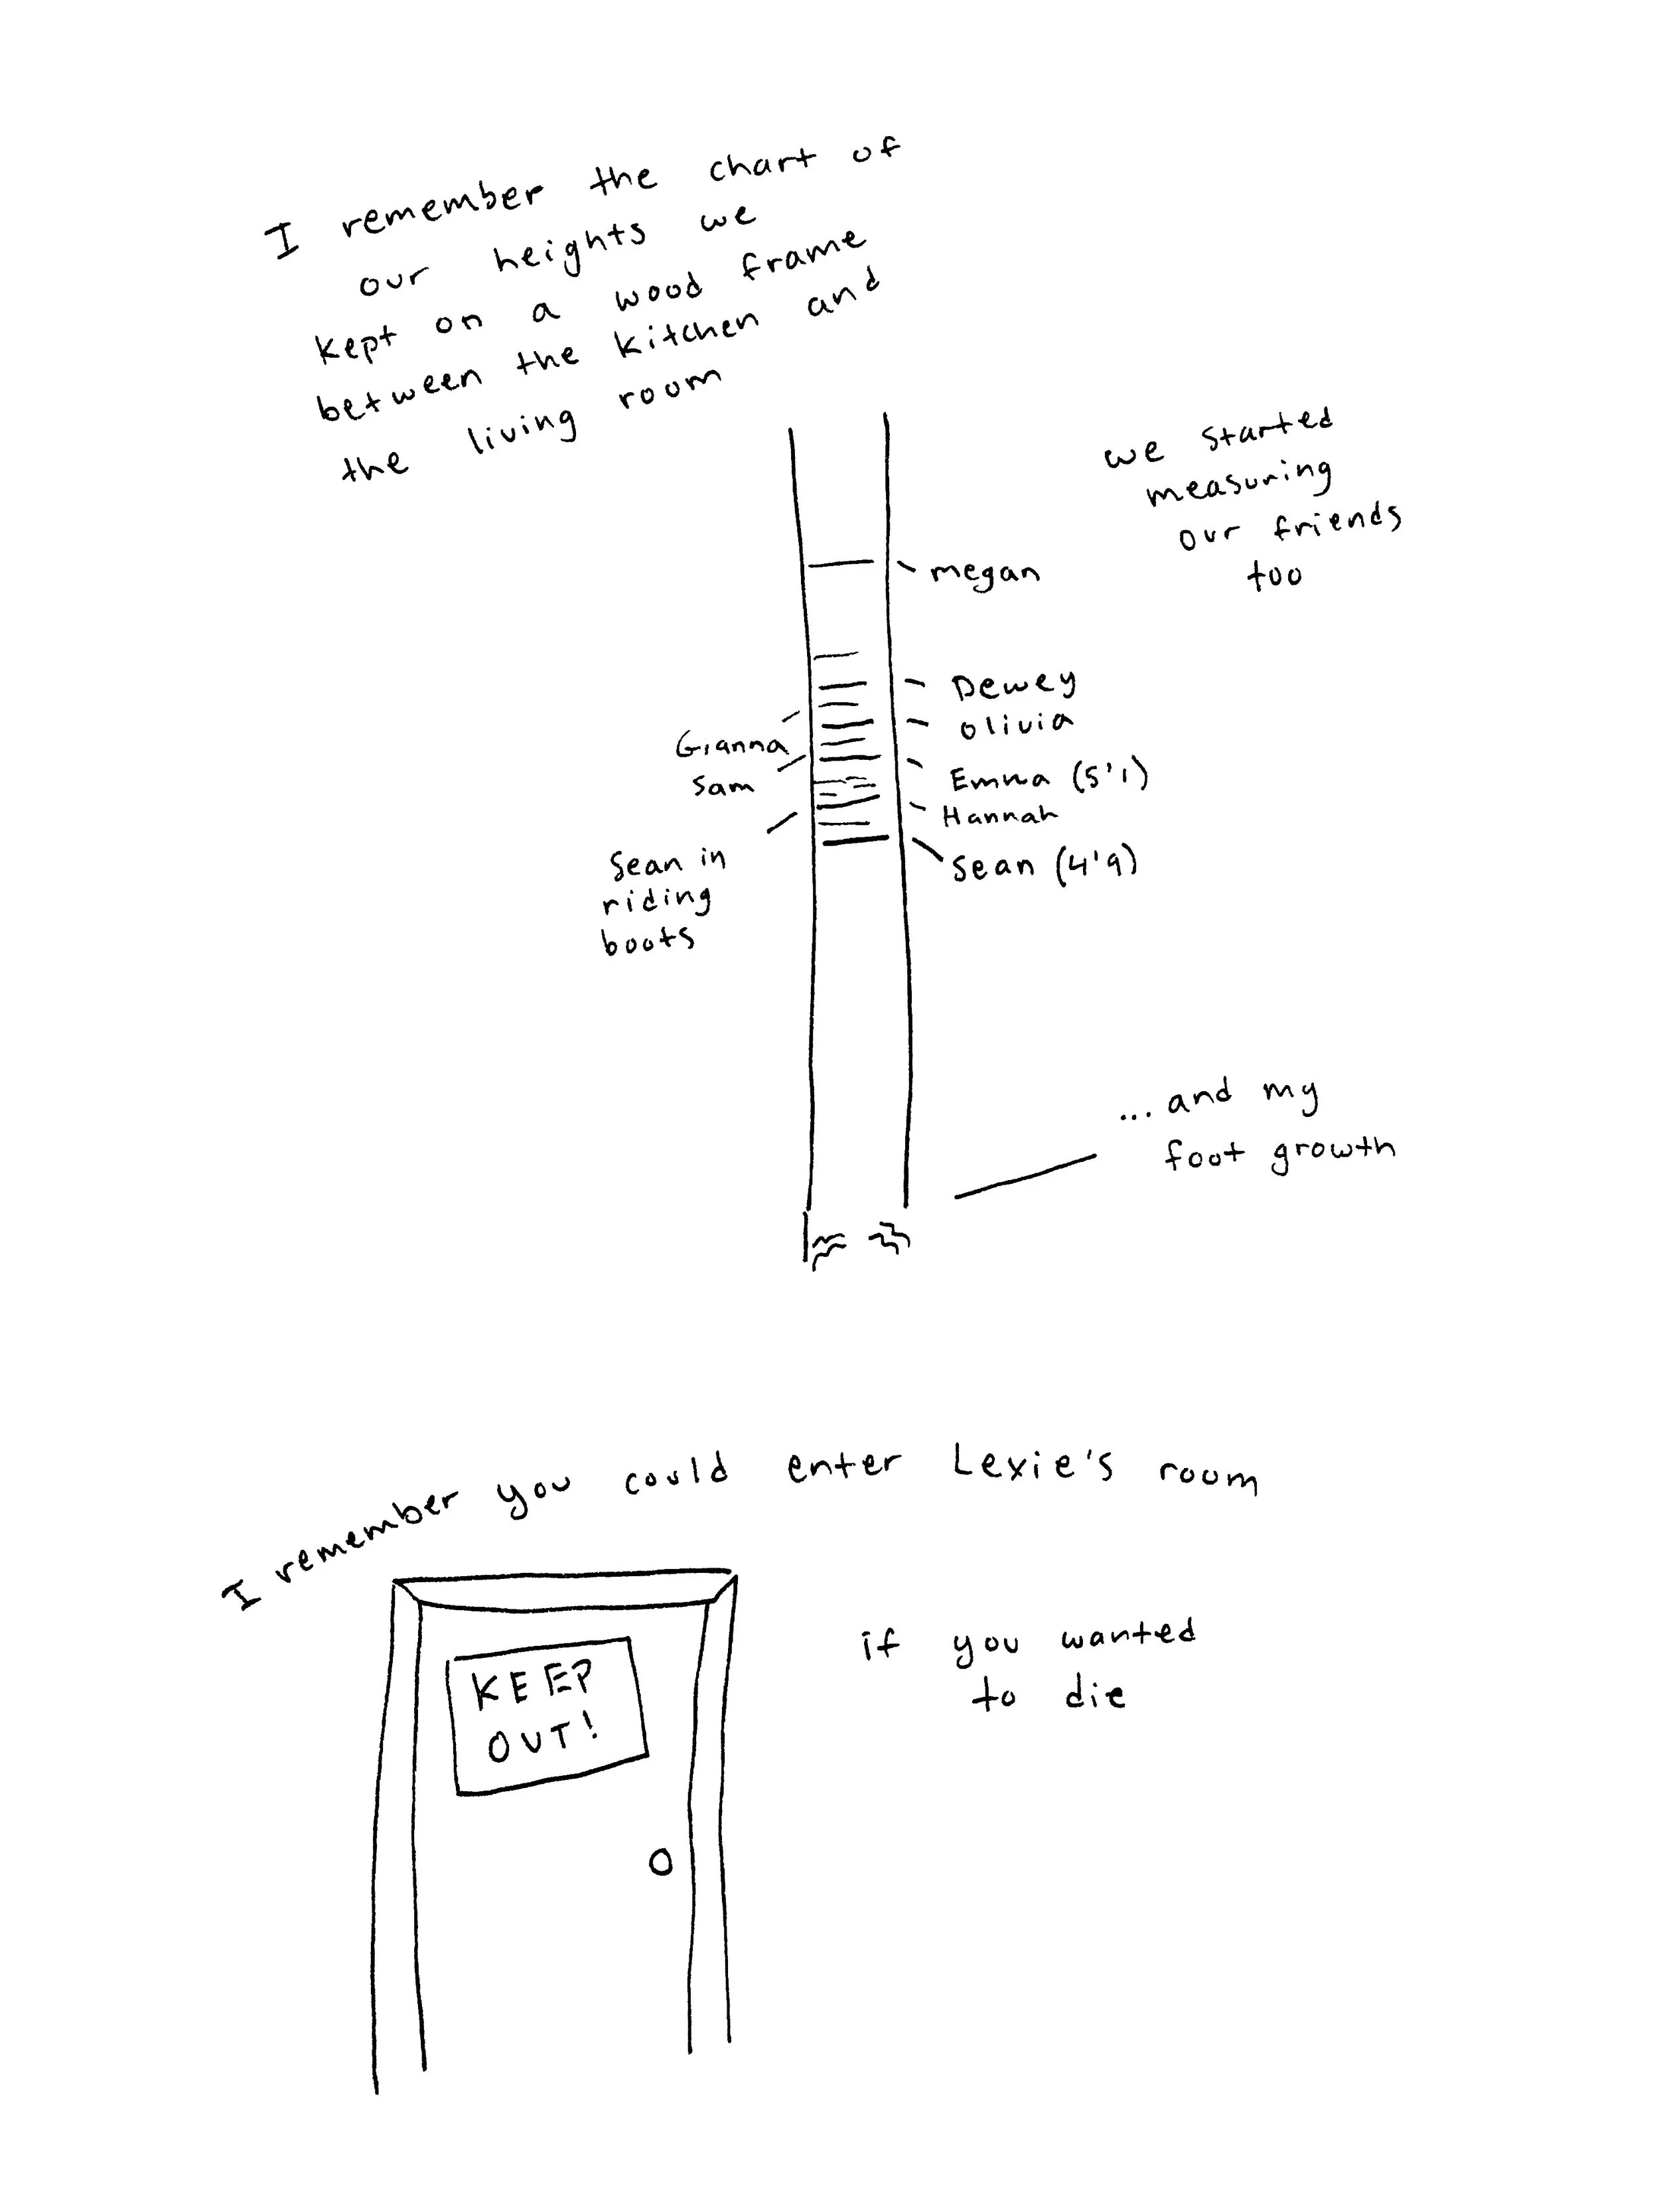 I remember the chart of
our heights we
kept on a wood frame
between the kitchen and
the living room
we started
measuring
our friends
too
megan
Dewey
Gianna
olivia
Sam
Emma (5'1)
Hannah
Sean in
riding
boots
Sean (4'9)
... and my
foot growth
I remember you could enter Lexie's room
KEEP
OUT!
if you wanted
to die